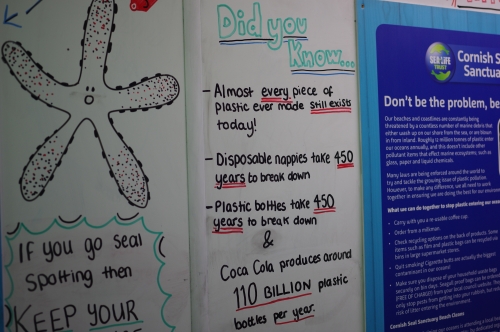 Did you
Know...
- Almost every piece of
plastic ever made still exists
today!
- Disposable nappies take 450
years to break down
- Plastic bottles take 450
years to break down
&
Coca Cola produces around
110 BILLION plastic
bottles per year.
IF you go Seal
Spotting then
KEEP YOUR
SEA LIFE
TRUST
Cornish Se
Sanctua
Don't be the problem, be
Our beaches and coastlines are constantly being
threatened by a countless number of marine debris that
either wash up on our shore from the sea, or are blown
in from inland. Roughly 12 million tonnes of plastic enter
our oceans annually, and this doesn't include other
pollutant items that affect marine ecosystems, such as
glass, paper and liquid chemicals.
Many laws are being enforced around the world to
try and tackle the growing issue of plastic pollution.
However, to make any difference, we all need to work
together in ensuring we are doing the best for our environment.
What we can do to stop plastic entering our oce
Carry with you a re-usable coffee cup.
Order from a milkman.
Check recycling options on the back of products. Some
items such as film and plastic bags can be recycled in
bins in large supermarket stores.
Quit smoking! Cigarette butts are actually the biggest
contaminant in our oceans.
Cornish Seal Sanctuary Beach Cleans